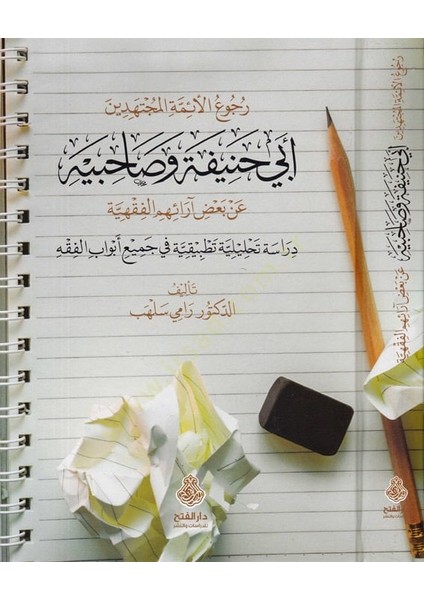 رُجُوعُ الأَئِمَّةِ المُجْتَهِدِينَ
أَبِي حَنِيفَةَ وَصَاحِبَيْهِ
عَنْ بَعْضِ آرَائِهِمُ الفِقْهِيَّةِ
دِرَاسَة تَحْلِيلِيَّة تَطْبِيقِيَّة فِي جَمِيْعِ أَبْوَابِ الفِقْهِ
تَأْلِيْفُ
الدكتُور رَامِي سَلْهَب
دار الفتح
للدراسات والنشر
رُجُوعُ الأَئِمَّةِ المُجْتَهِدِينَ
أَبِي حَنِيفَةَ وَصَاحِبَيْهِ
عَنْ بَعْضِ آرَائِهِمُ الفِقْهِيَّةِ
دار الفتح
للدراسات والنشر